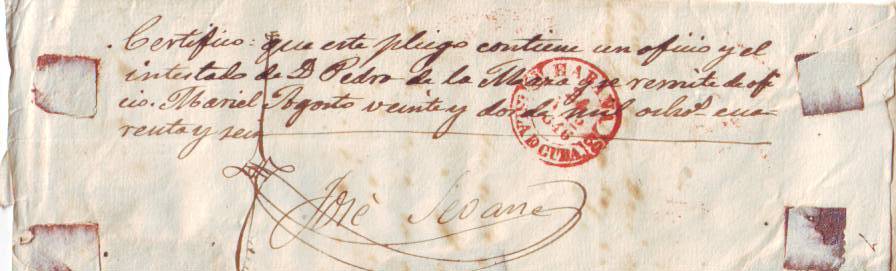 Certifico: que este pliego contiene un oficio y el
intestado de D Pedro de la Maza y se remite de ofi
cio. Mariel Agosto veinte y dos de mil ochos. cua-
renta y seis
HABANA
CUBA
José Seoane